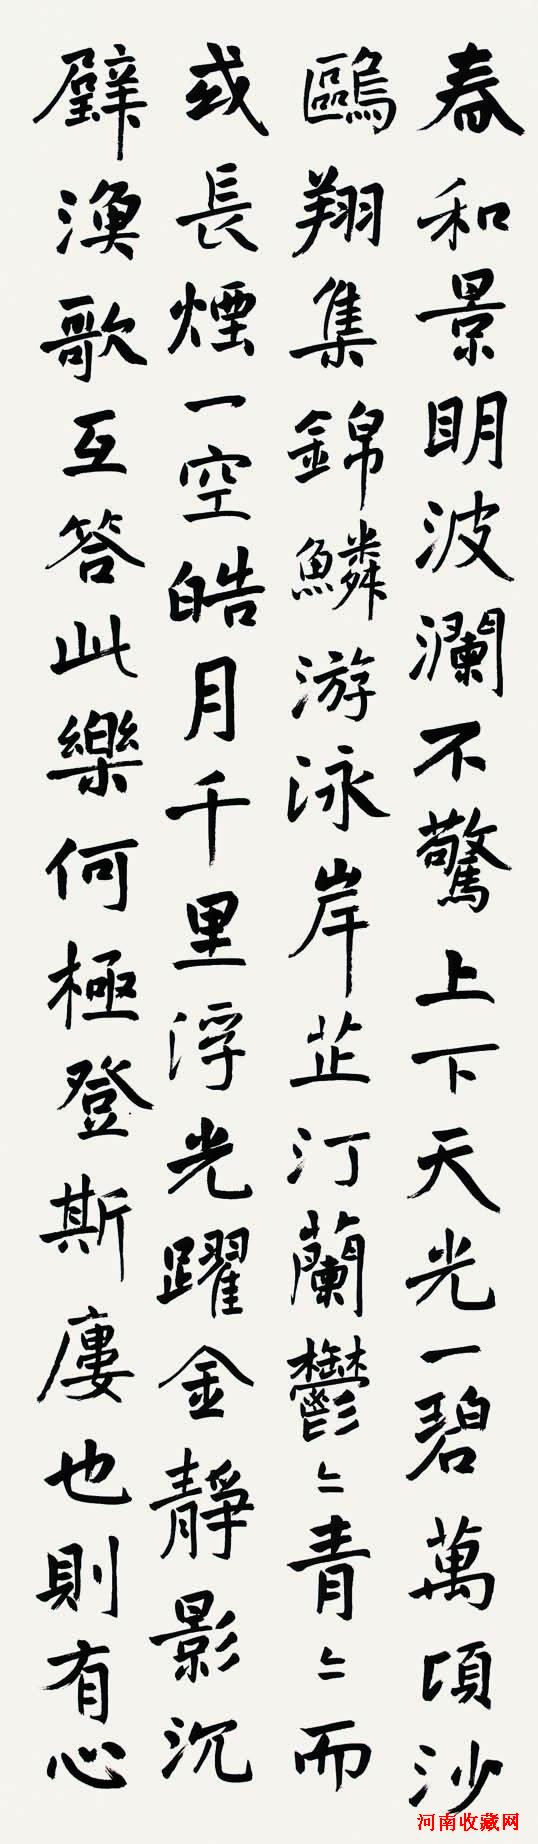 春和景眀波瀾不驚上下天光一碧萬頃沙
鷗翔集錦鱗游泳岸芷汀蘭鬱〻青〻而
或長煙一空皓月千里浮光躍金靜影沉
璧漁歌互答此樂何極登斯廔也則有心
河南收藏网